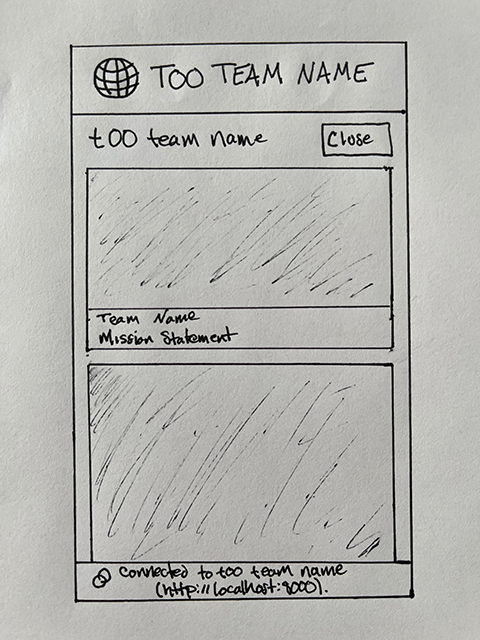 TOO TEAM NAME
too team name
Close
Team Name
Mission Statement
Connected to too team name
(http://localhost:8000).